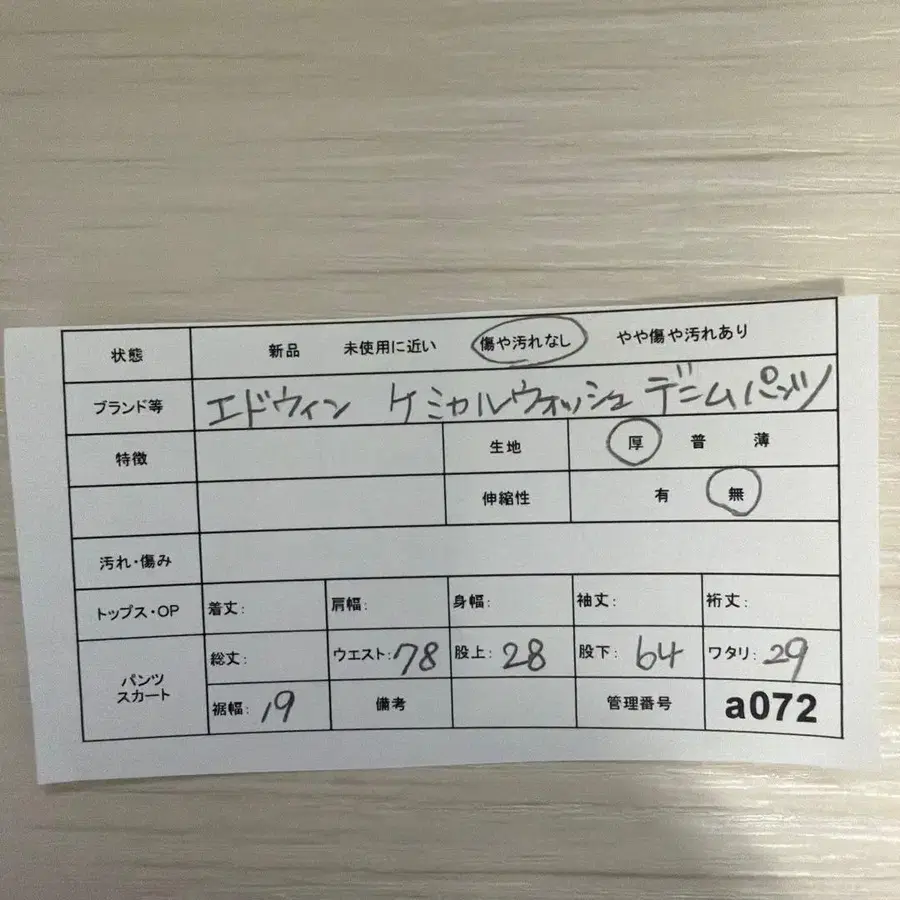 状態 新品 未使用に近い 傷や汚れなし やや傷や汚れあり
ブランド等 エドウィン ケミカルウォッシュ デニムパンツ
特徴 生地 厚 普 薄
伸縮性 有 無
汚れ・傷み
トップス・OP 着丈: 肩幅: 身幅: 袖丈: 裄丈:
パンツ スカート 総丈: ウエスト:78 股上:28 股下:64 ワタリ:29
裾幅:19 備考 管理番号 a072